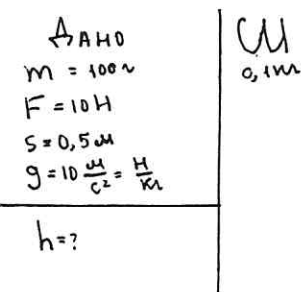 Дано
m = 100г
F = 10Н
S = 0,5м
g = 10 м/с² = Н/кг
h = ?
СИ
0,1кг